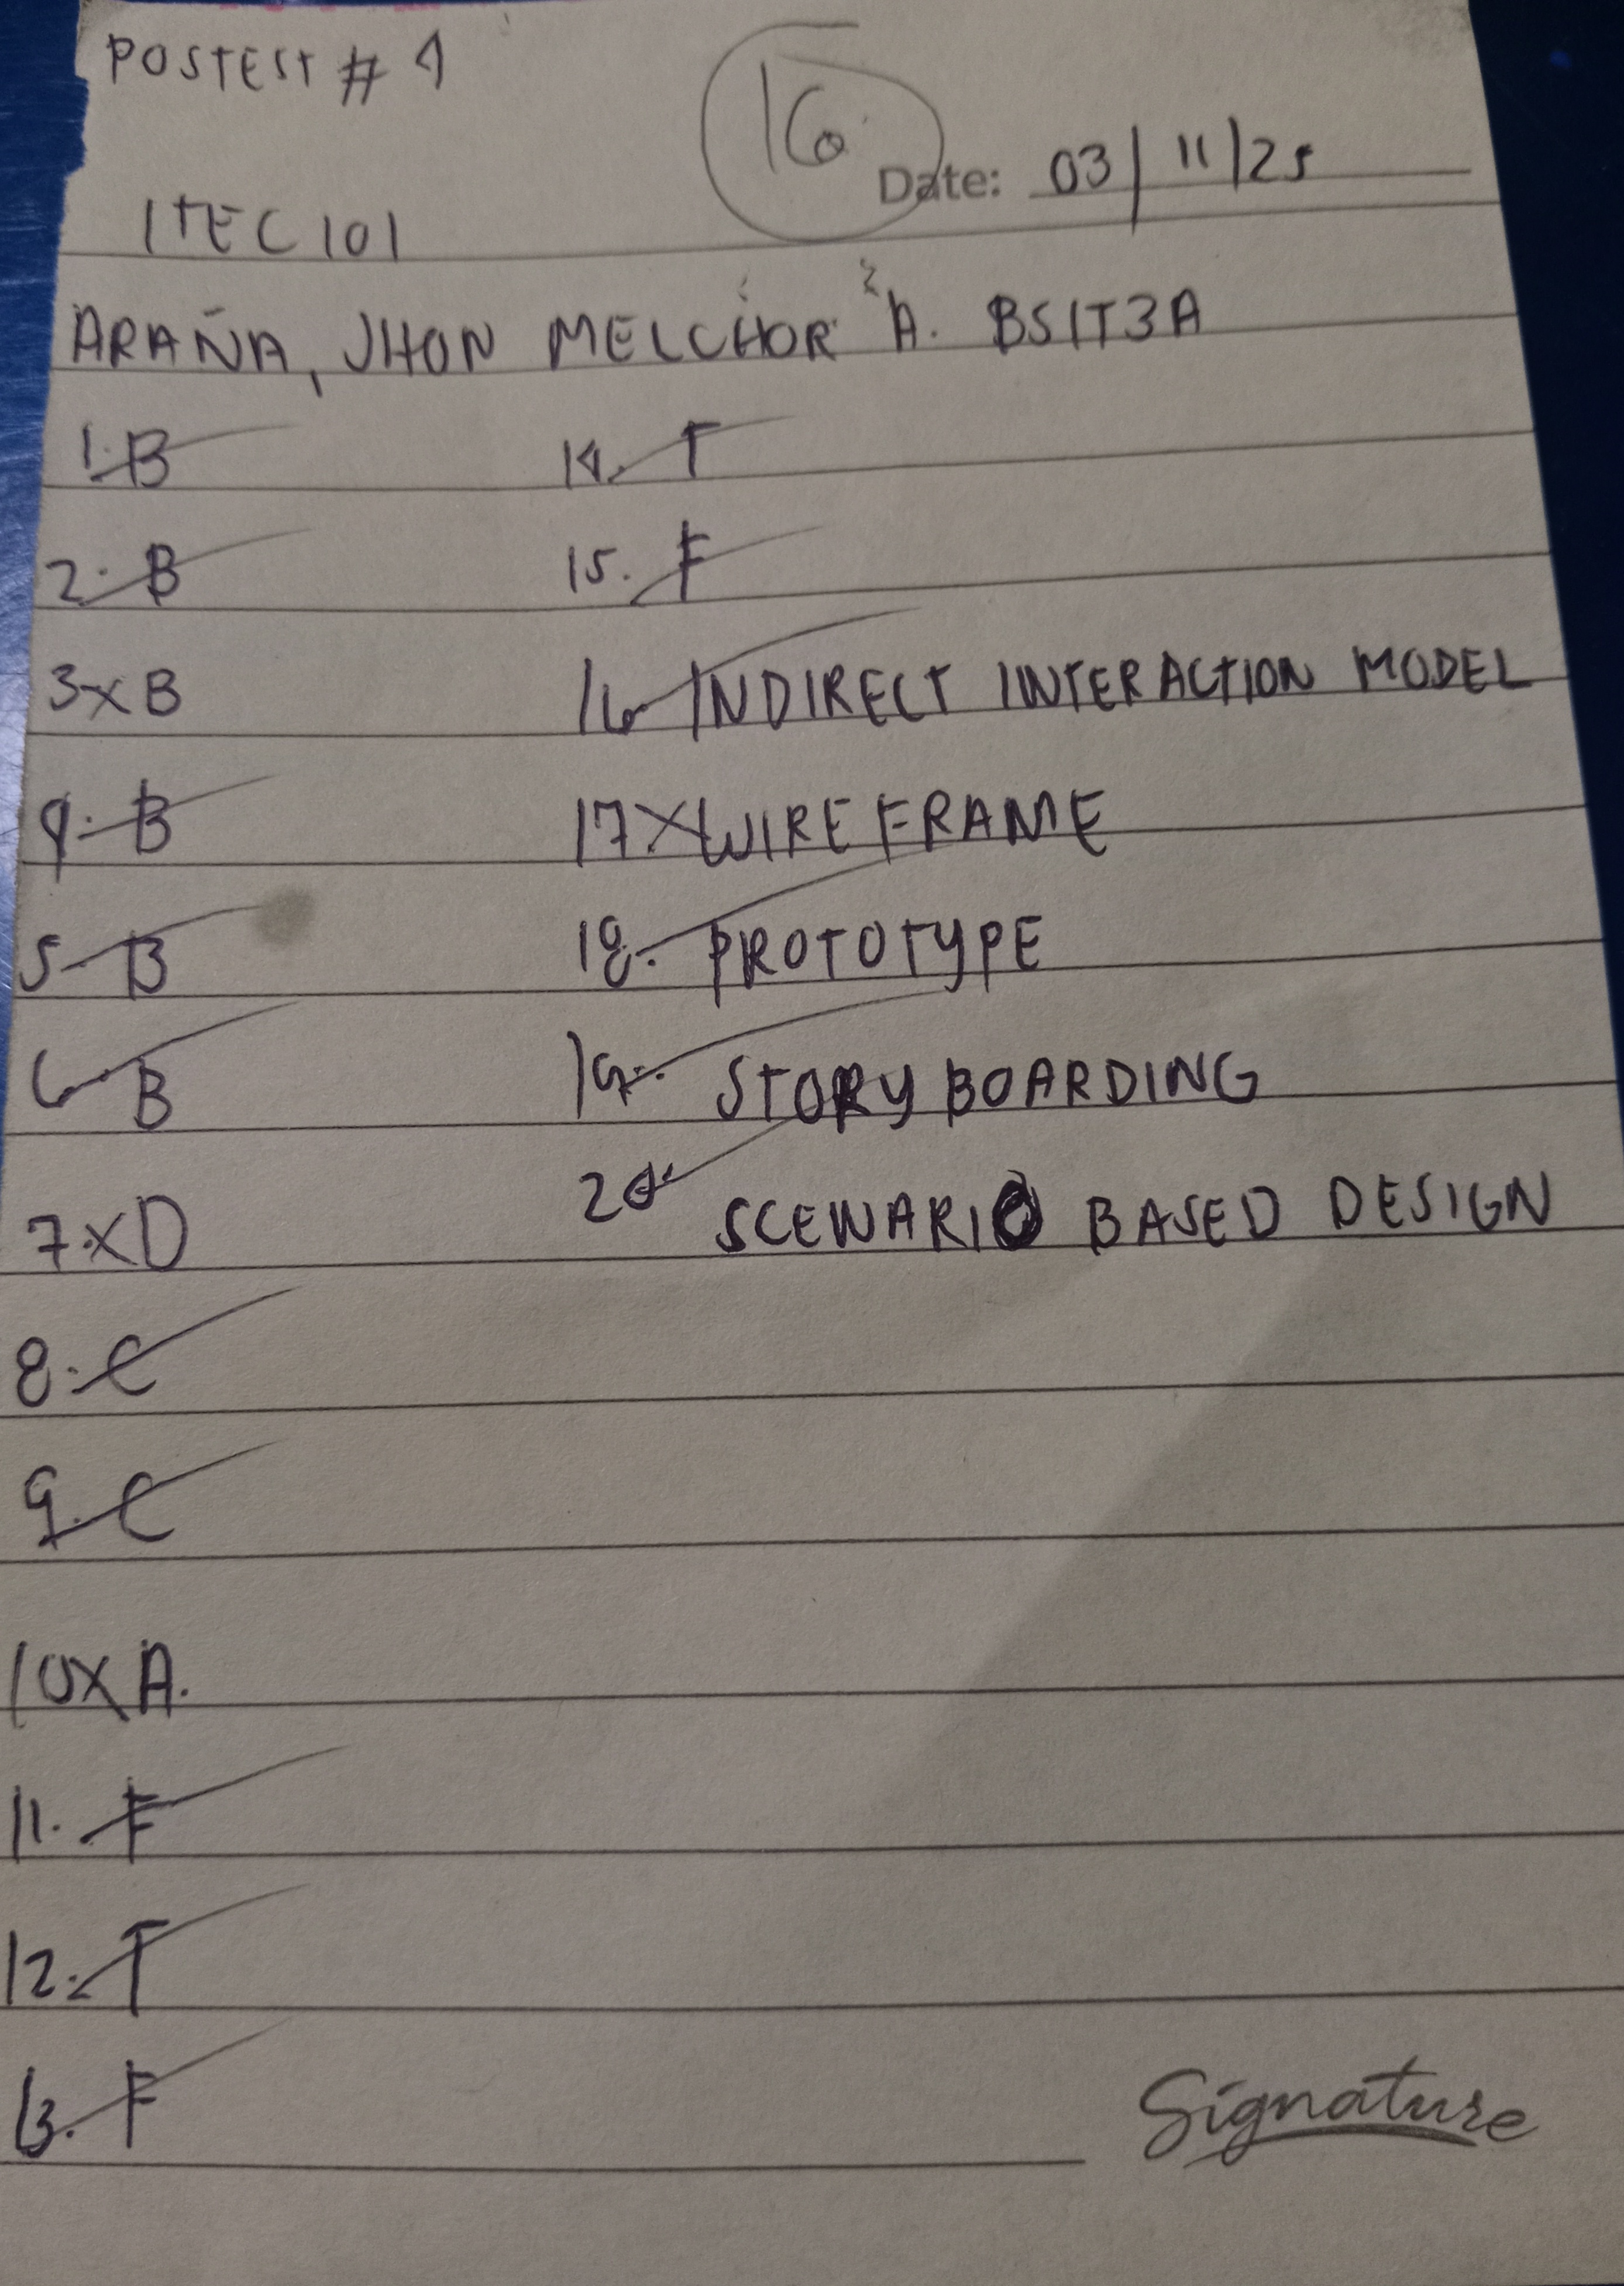 POSTEST # 4
16
Date: 03/11/25
ITEC 101
ARAÑA, JHON MELCHOR A. BSIT3A
1. B
2. B
3 x B
4. B
5. B
6. B
7. x D
8. C
9. C
10 x A.
11. F
12. T
13. F
14. T
15. F
16. INDIRECT INTERACTION MODEL
17 x WIREFRAME
18. PROTOTYPE
19. STORYBOARDING
20. SCENARIO BASED DESIGN
Signature